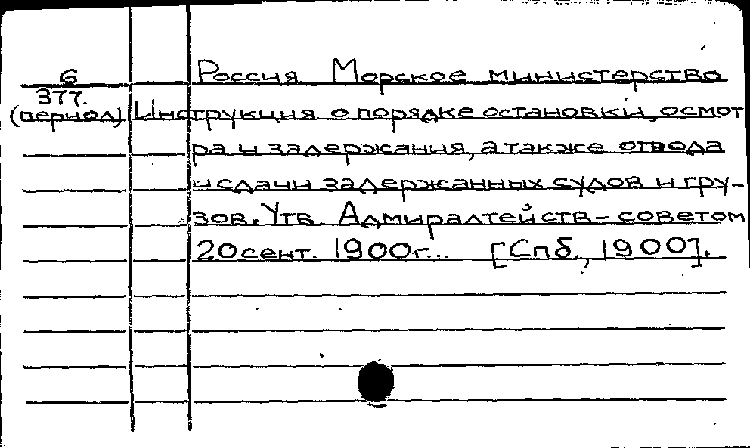 6 Россия Морское министерство
377.
(период) Инструкция о порядке остановки, осмот
ра и задержания, а также отвода
и сдачи задержанных судов и гру-
зов. Утв. Адмиралтейств-советом
20 сент. 1900г... [Спб., 1900].